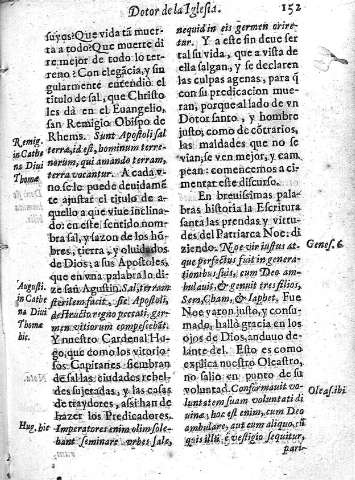 Dotor de la Iglesia. 152
suyos? Que vida tã muer-
ta a todo? Que muerte di
re mejor de todo lo ter-
reno? Con elegãcia, y sin
gularmente entendiò el
titulo de sal, que Christo
les dà en el Euangelio,
san Remigio Obispo de
Rhems. Sunt Apostoli sal
terræ, id est, hominum terre-
norum, qui amando terram,
terra vocantur. A cada v-
no se lo puede deuidamẽ
te ajustar el titulo de a-
quello a que viue inclina-
do: en este sentido nomb
ra sal, y sazon de los hõ-
bres, tierra, y oluidados
de Dios; a sus Apostoles,
que en vna palabra lo di-
ze san Agustin. Sal, terram
sterilem facit, sic Apostoli,
germen vitiorum compescebãt.
Y nuestro Cardenal Hu-
go, que como los vitorio-
sos Capitanes siembran
de sal las ciudades rebel-
des sujetadas, y las casas
de traydores, assi han de
hazer los Predicadores.
Imperatores enim olim sole-
bant seminare vrbes sale,
Remig.
in Cathe
na Diui
Thomæ
Augusti.
in Cathe
na Diui
Thomæ
hic.
Hug. hic
nequid in eis germen orire-
tur. Y a este fin deue ser
tal su vida, que a vista de
ella salgan, y se declaren
las culpas agenas, para q̃
con su predicacion mue-
ran, porque al lado de vn
Dotor santo, y hombre
justo; como de cõtrarios,
las maldades que no se
vian, se ven mejor, y cam-
pean: comencemos a ci-
mentar este discurso.
En breuissimas pala-
bras historia la Escritura
santa las prendas, y virtu-
des del Patriarca Noe; di
ziendo. Noe vir iustus at-
que perfectus fuit in genera-
tionibus suis, cum Deo am-
bulauit, & genuit tres filios,
Sem, Cham, & Iaphet, Fue
Noe varon justo, y consu-
mado, hallò gracia en los
ojos de Dios, anduuo de-
lante del. Esto es como
explica nuestro Oleastro,
no salio en punto de su
voluntad. Conformauit vo-
luntatem suam voluntati di
uinæ, hoc est enim, cum Deo
ambulare, aut cum aliquo, sũ
quis illi è vestigio sequitur,
pari-
Genes. 6.
Oleas. ibi